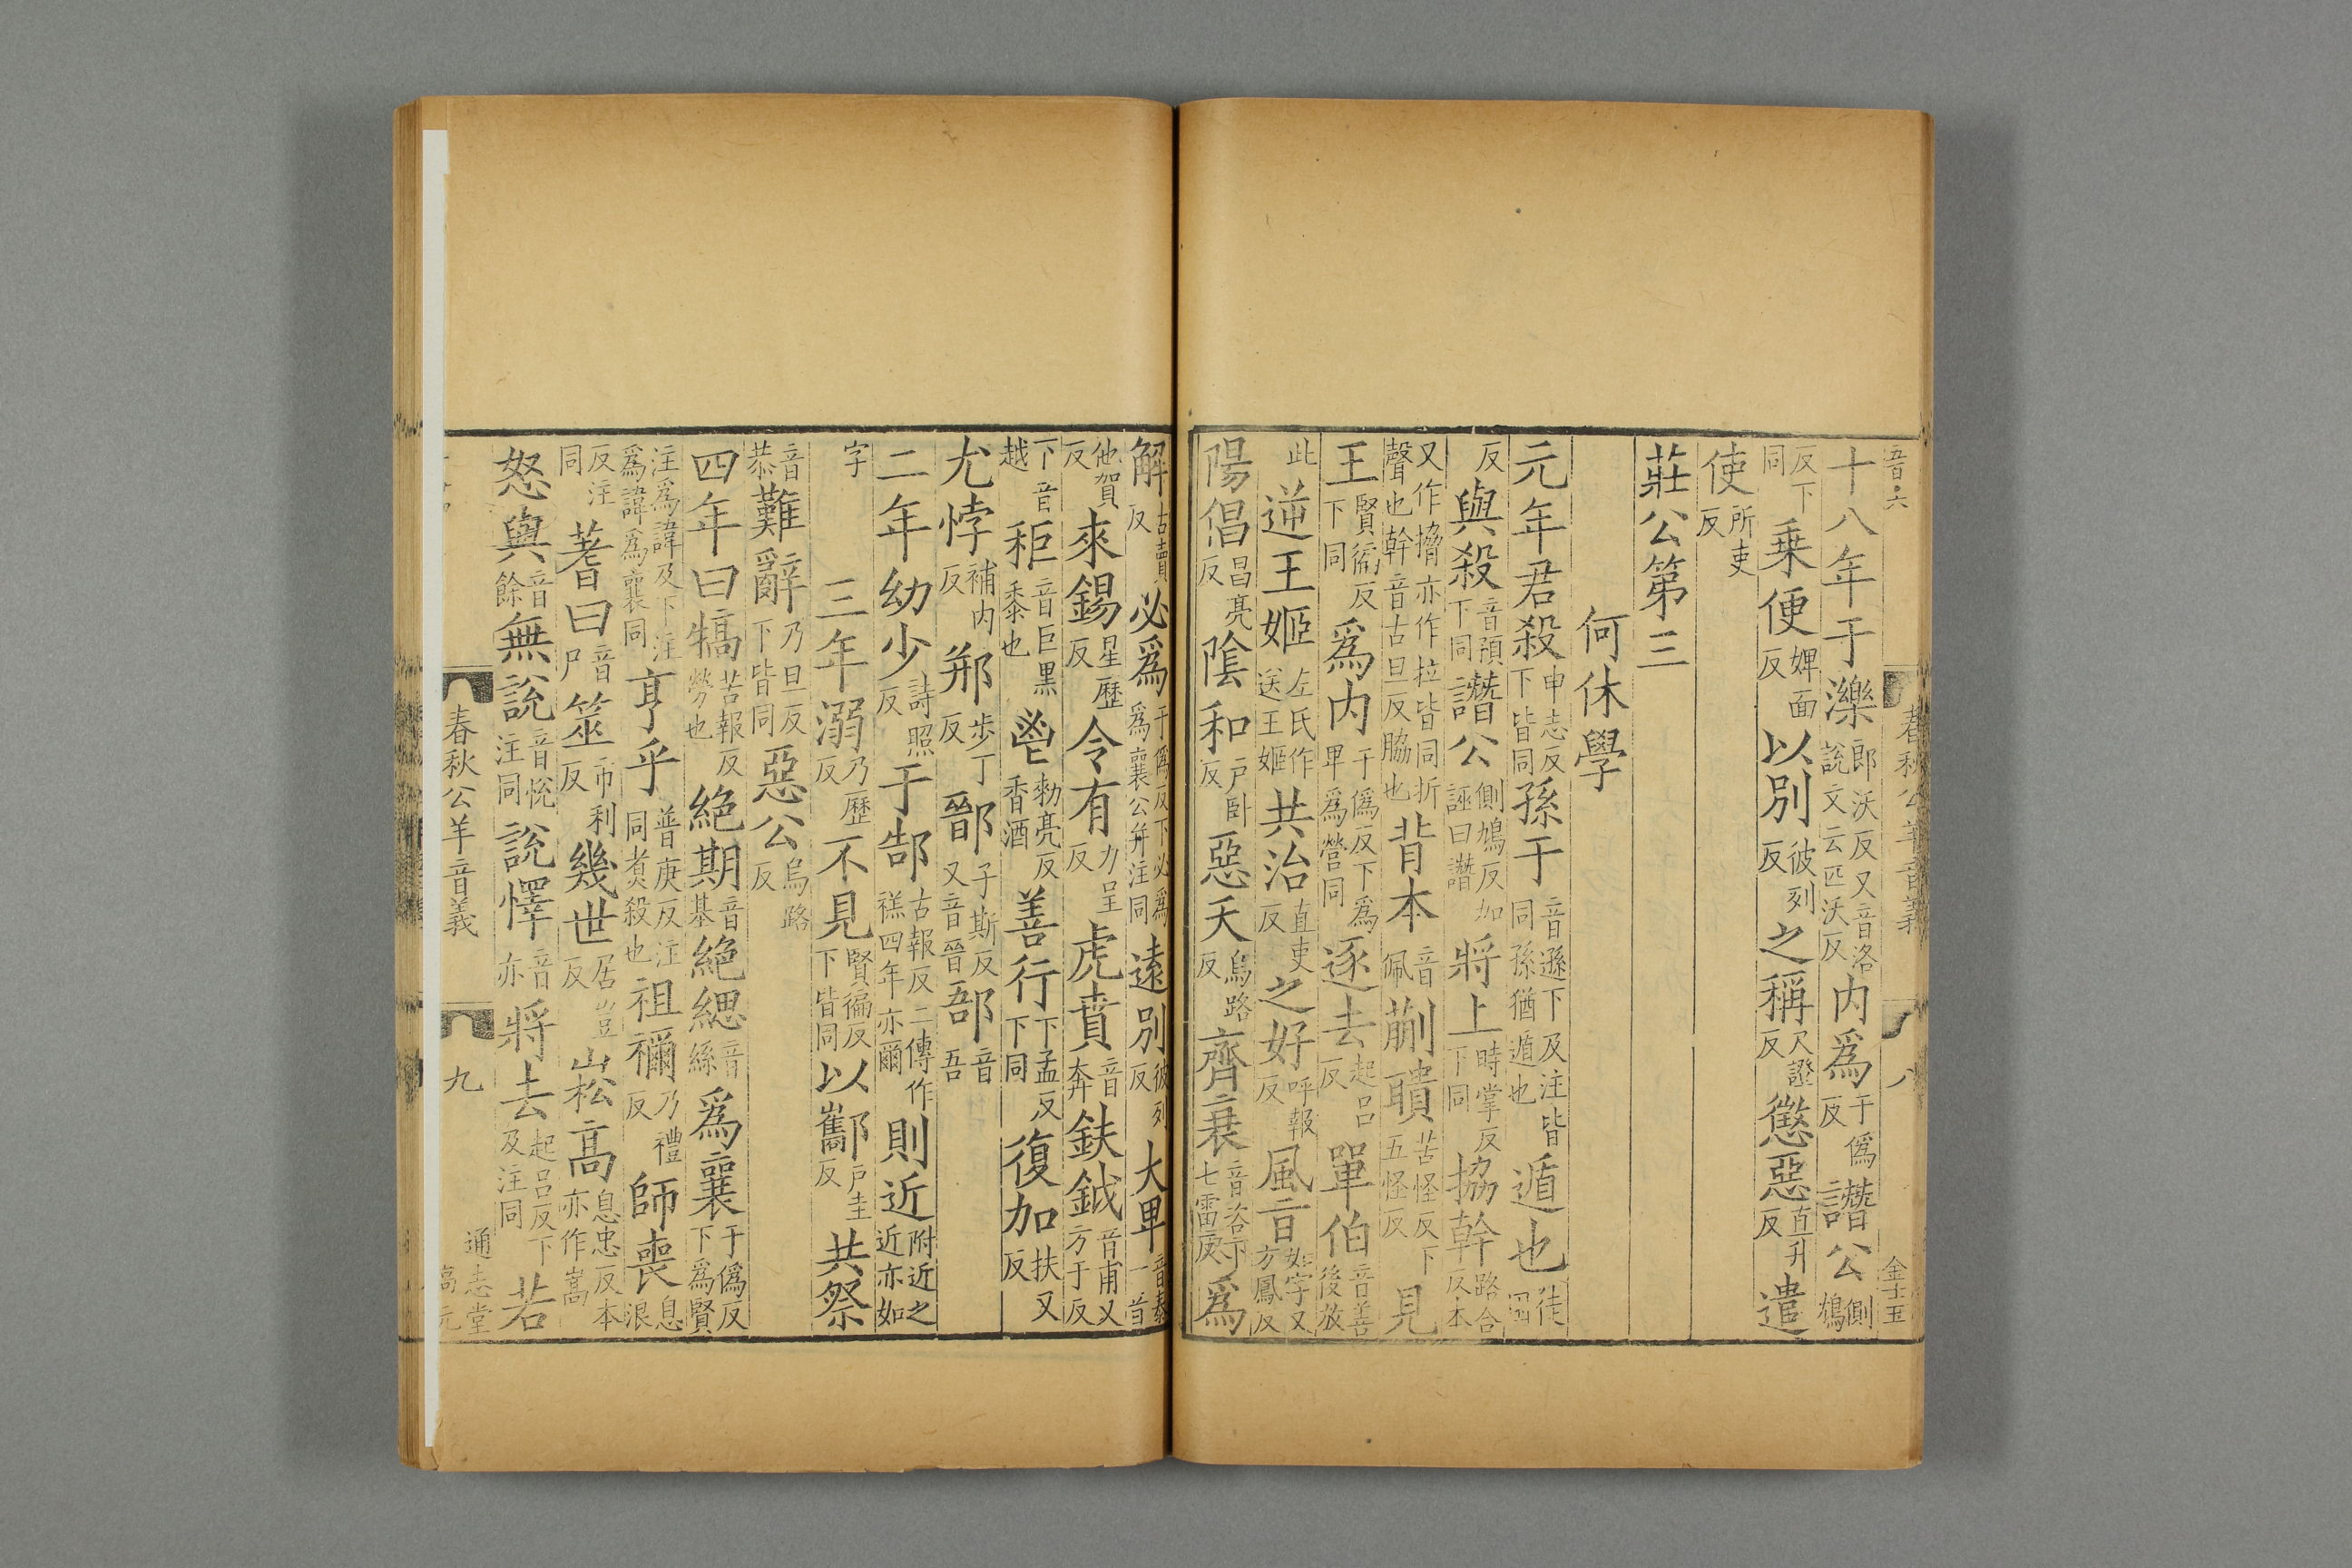 十八年于濼郎沃反又音洛說文云匹沃反內爲于僞反譖公側鴆
反下同乗便婢面反以別彼列反之稱尺證反懲惡直升反遣
使所吏反
莊公第三
何休學
元年君殺申志反下皆同孫于音遜下及注皆同孫猶遁也遁也徒困
反與殺音預下同譖公側鴆反加誣曰譖將上時掌反下同協幹路合反本
又作搚亦作拉皆同折聲也幹音古旦反脇也背本音佩蒯聵苦怪反下五怪反見
王賢徧反下同爲內于僞反下爲單爲營同逐去起呂反單伯音善後放
此逆王姬左氏作送王姬共治直吏反之好呼報反風音如字又方鳳反
陽倡昌亮反陰和戶卧反惡天烏路反齊衰音咨下七雷反爲
解古賣反必爲于僞反下必爲爲襄公并注同遠別彼列反大卑音泰一音
他賀反來錫星歷反令有力呈反虎賁音奔鈇鉞音甫又方于反
下音越秬音巨黑黍也鬯勑亮反香酒善行下孟反下同復加扶又反
尤悖補內反郱步丁反鄑子斯反又音晉郚音吾
二年幼少詩照反于郜古報反二傳作禚四年亦爾則近附近之近亦如
字三年溺乃歷反不見賢徧反下皆同以酅戶圭反共祭
音恭難辭乃旦反下皆同惡公烏路反
四年曰犒苦報反勞也絕期音基絕緦音絲爲襄于僞反下爲賢
注爲諱及下注爲諱爲襄同亨乎普庚反注同煮殺也祖禰乃禮反師喪息浪
反注同蓍曰音尸筮市利反幾世居豈反崧高息忠反本亦作嵩
怒與音餘無說音悅注同說懌音亦將去起呂反下及注同若
春秋公羊音義
九
通志堂